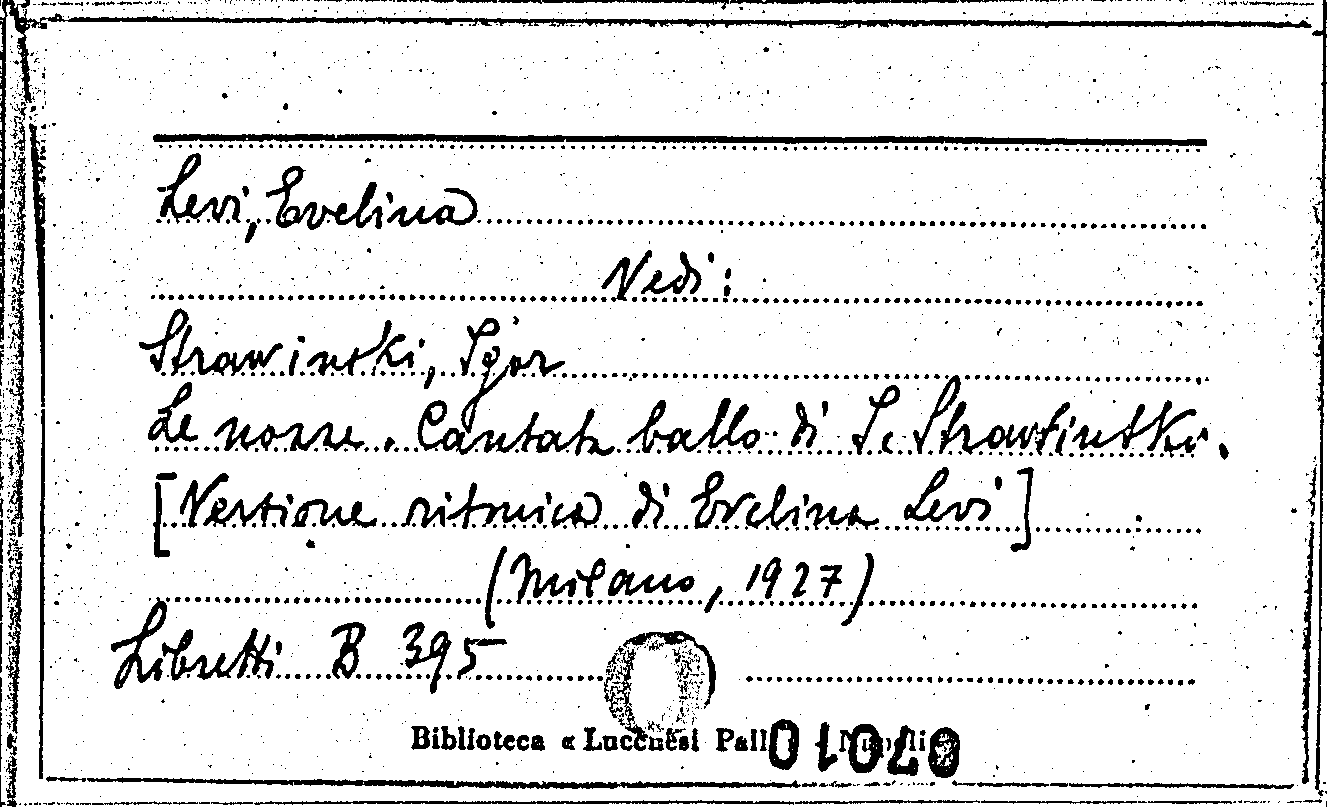 Levi, Evelina
Vedi:
Strawinski, Igor
Le nozze. Cantata ballo di I. Strawinski.
[Versione ritmica di Evelina Levi]
(Milano, 1927)
Libretti B 395
Biblioteca « Lucchesi Pall